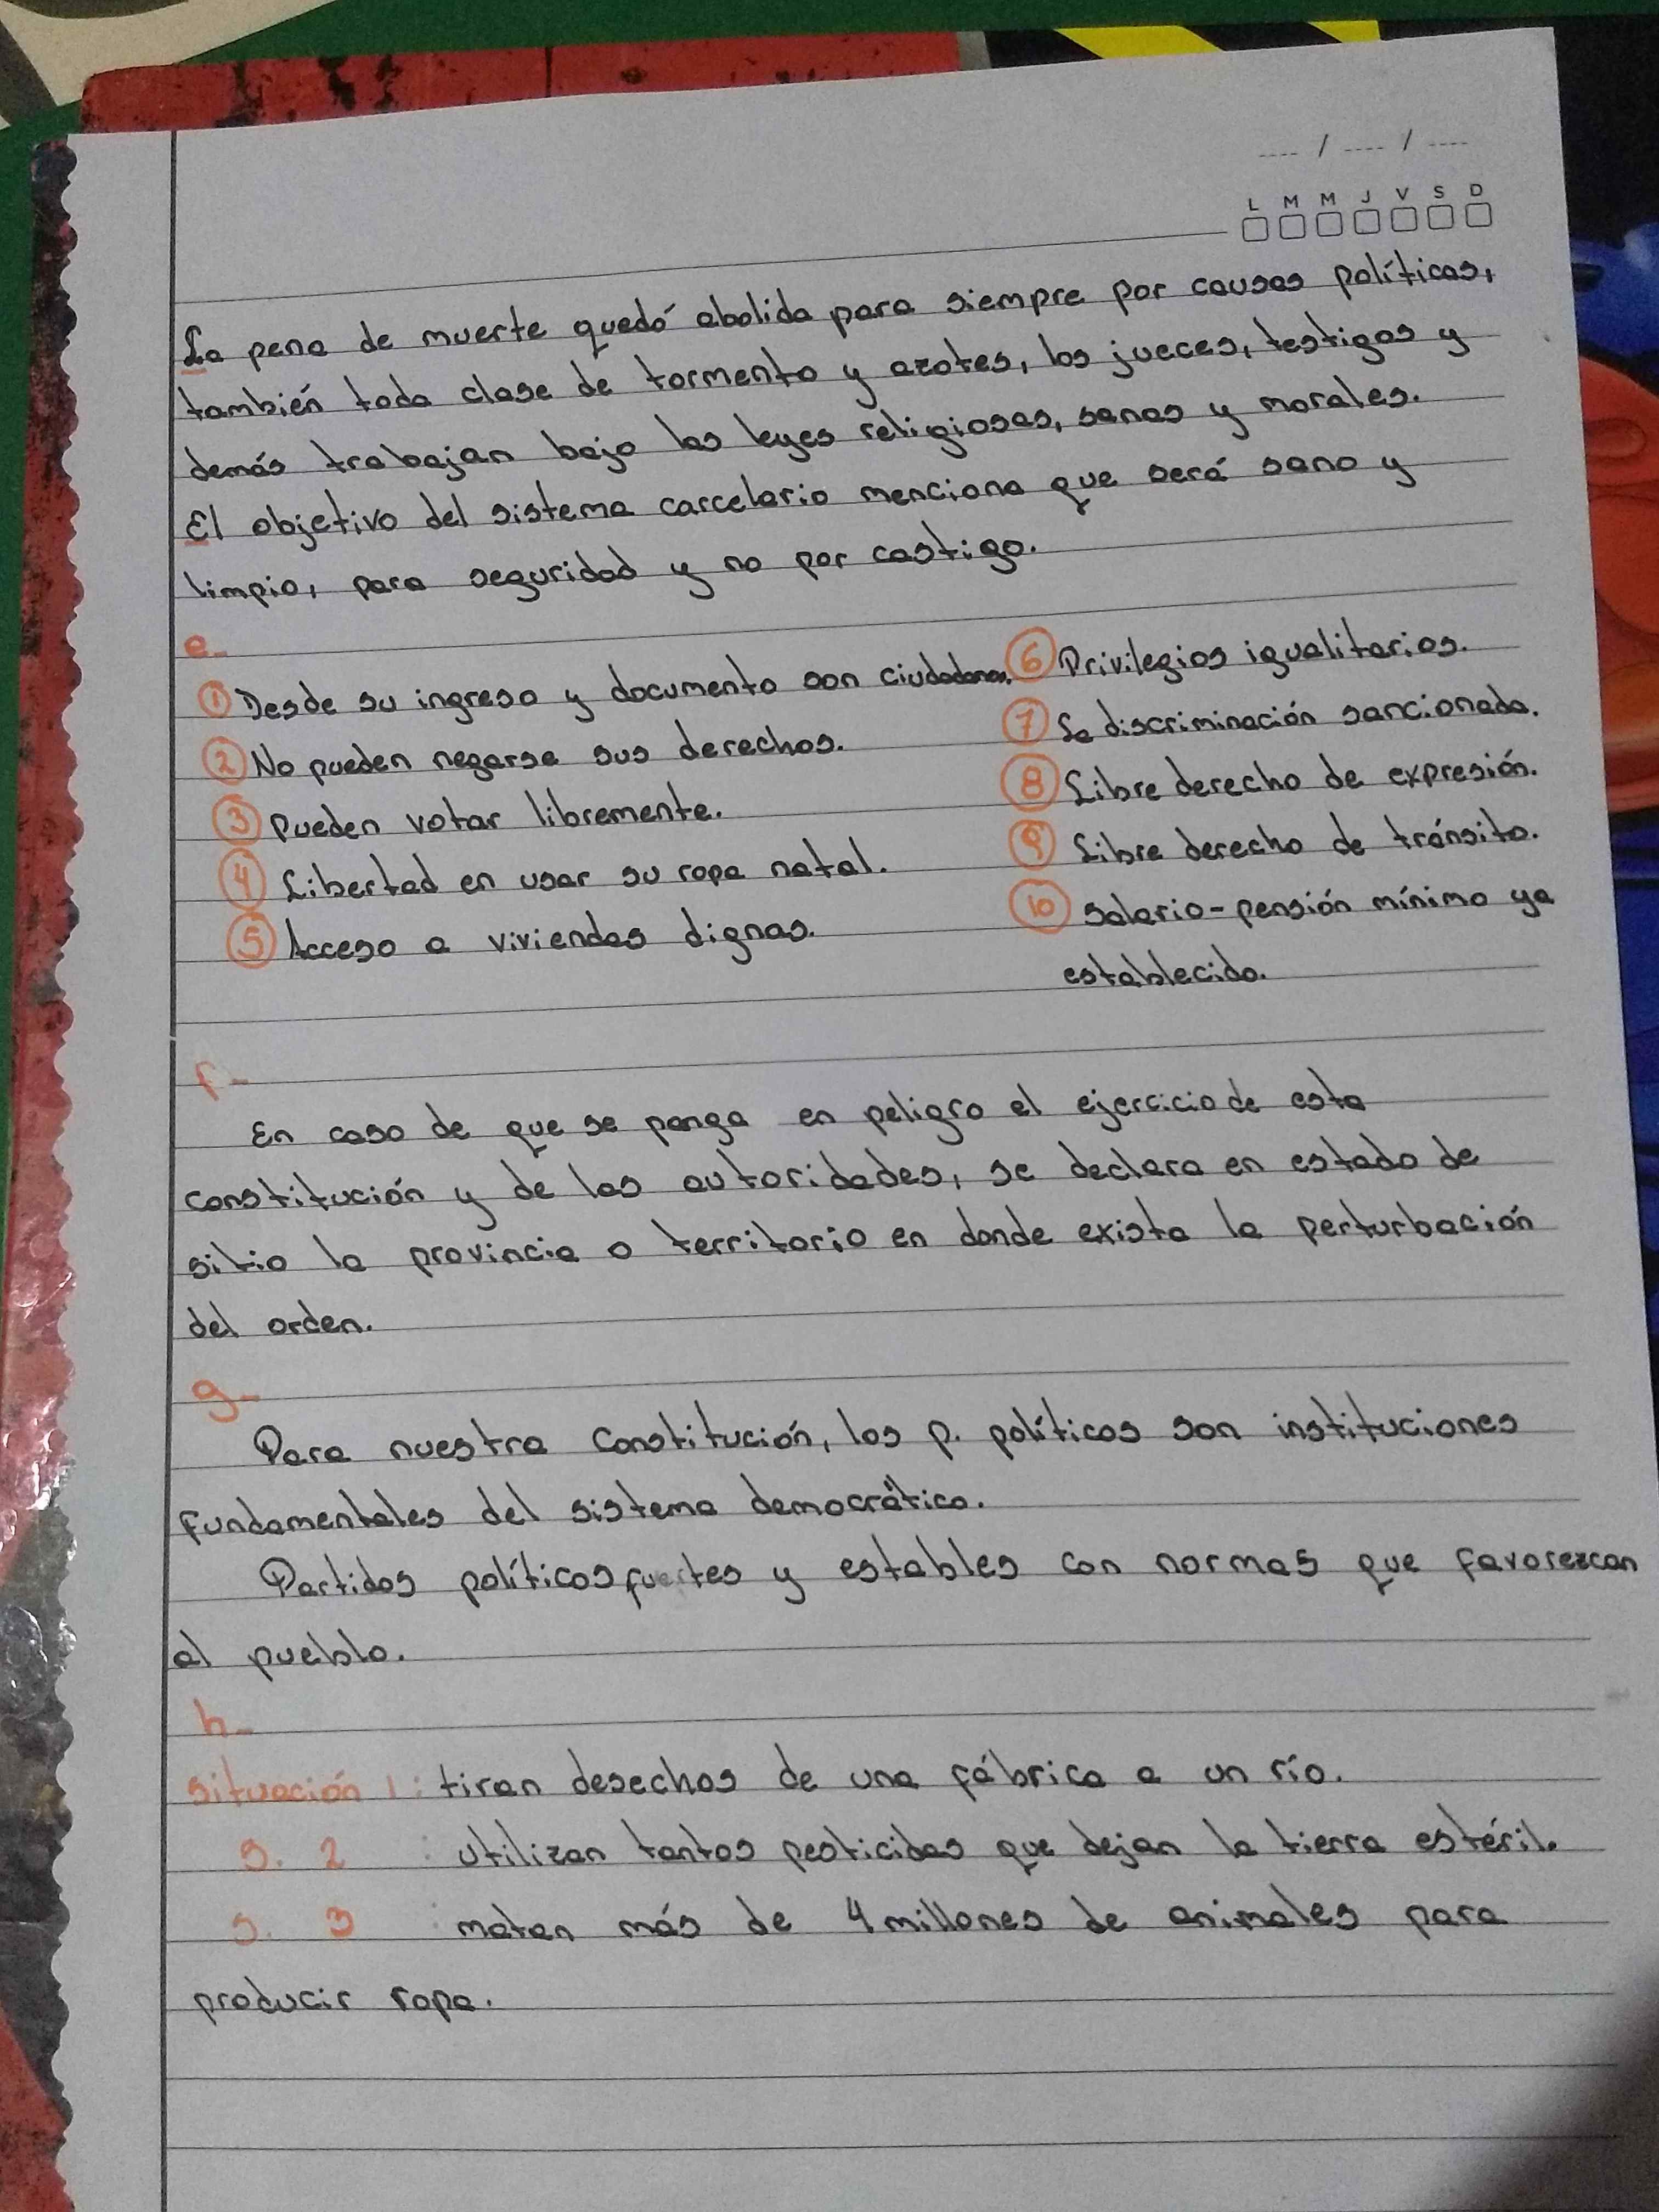 ---- / ---- / ----
L M M J V S D
La pena de muerte quedó abolida para siempre por causas políticas,
también toda clase de tormento y azotes, los jueces, testigos y
demás trabajan bajo las leyes religiosas, sanas y morales.
El objetivo del sistema carcelario menciona que será sano y
limpio, para seguridad y no por castigo.
e-
① Desde su ingreso y documento son ciudadanos.
② No pueden negarse sus derechos.
③ Pueden votar libremente.
④ Libertad en usar su ropa natal.
⑤ Acceso a viviendas dignas.
⑥ Privilegios igualitarios.
⑦ La discriminación sancionada.
⑧ Libre derecho de expresión.
⑨ Libre derecho de tránsito.
⑩ Salario-pensión mínimo ya
establecido.
f-
En caso de que se ponga en peligro el ejercicio de esta
constitución y de las autoridades, se declara en estado de
sitio la provincia o territorio en donde exista la perturbación
del orden.
g-
Para nuestra Constitución, los p. políticos son instituciones
fundamentales del sistema democrático.
Partidos políticos fuertes y estables con normas que favorezcan
al pueblo.
h-
situación 1: tiran desechos de una fábrica a un río.
S. 2 : utilizan tantos pesticidas que dejan la tierra estéril.
S. 3 : matan más de 4 millones de animales para
producir ropa.